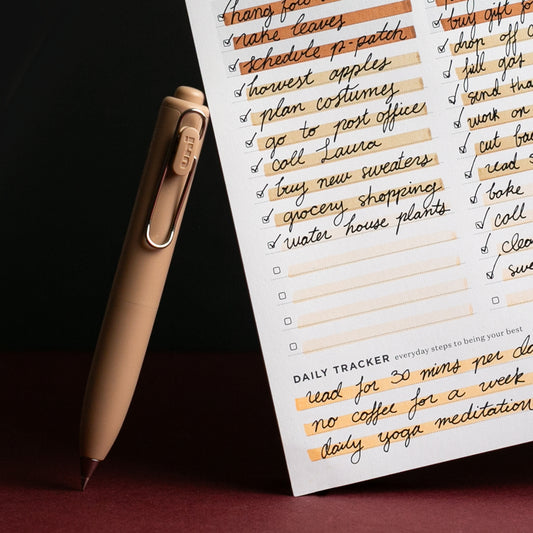 hang fo
rake leaves
schedule p-patch
harvest apples
plan costumes
go to post office
call Laura
buy new sweaters
grocery shopping
water house plants
buy gift fo
drop off c
full gas
send tha
work on
cut ba
read s
bake
call
clea
swe
DAILY TRACKER everyday steps to being your best
read for 30 mins per da
no coffee for a week
daily yoga meditation